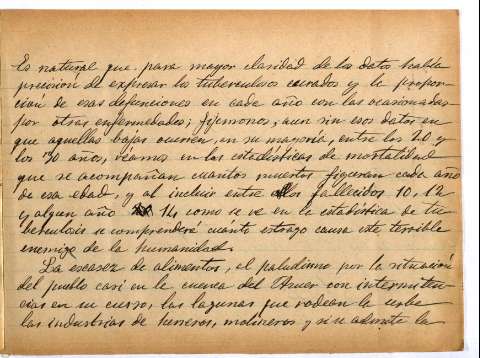 Es natural que para mayor claridad de los datos había
precisión de expresar los tuberculosos curados y la propor-
ción de esas defunciones en cada año con las ocasionadas
por otras enfermedades; fijemonos, aun sin esos datos en
que aquellas bajas ocurren, en su mayoria, entre los 20 y
los 30 años, veamos en las estadísticas de mortalidad
que se acompañan cuantos muertos figuran cada año
de esa edad, y al incluir entre fallecidos 10, 12
y algun año 14, como se ve en la estadística de tu-
berculosis se comprenderá cuanto estrago causa este terrible
enemigo de la humanidad.
La escasez de alimentos, el paludismo por la situación
del pueblo casi en la cuenca del Azuer con intermiten-
cias en su curso, las lagunas que rodean la urbe
las industrias de yeseros, molineros y si se admite la